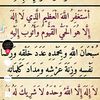 أَسْتَغْفِرُ اللهَ الْعَظِيمَ الَّذِي لَا إِلَهَ
إِلَّا هُوَ الْحَيَّ الْقَيُّومَ وَأَتُوبُ إِلَيْهِ
سُبْحَانَ اللهِ وَبِحَمْدِهِ عَدَدَ خَلْقِهِ وَرِضَا
نَفْسِهِ وَزِنَةَ عَرْشِهِ وَمِدَادَ كَلِمَاتِهِ
لَا إِلَهَ إِلَّا اللهُ وَحْدَهُ لَا شَرِيكَ لَهُ